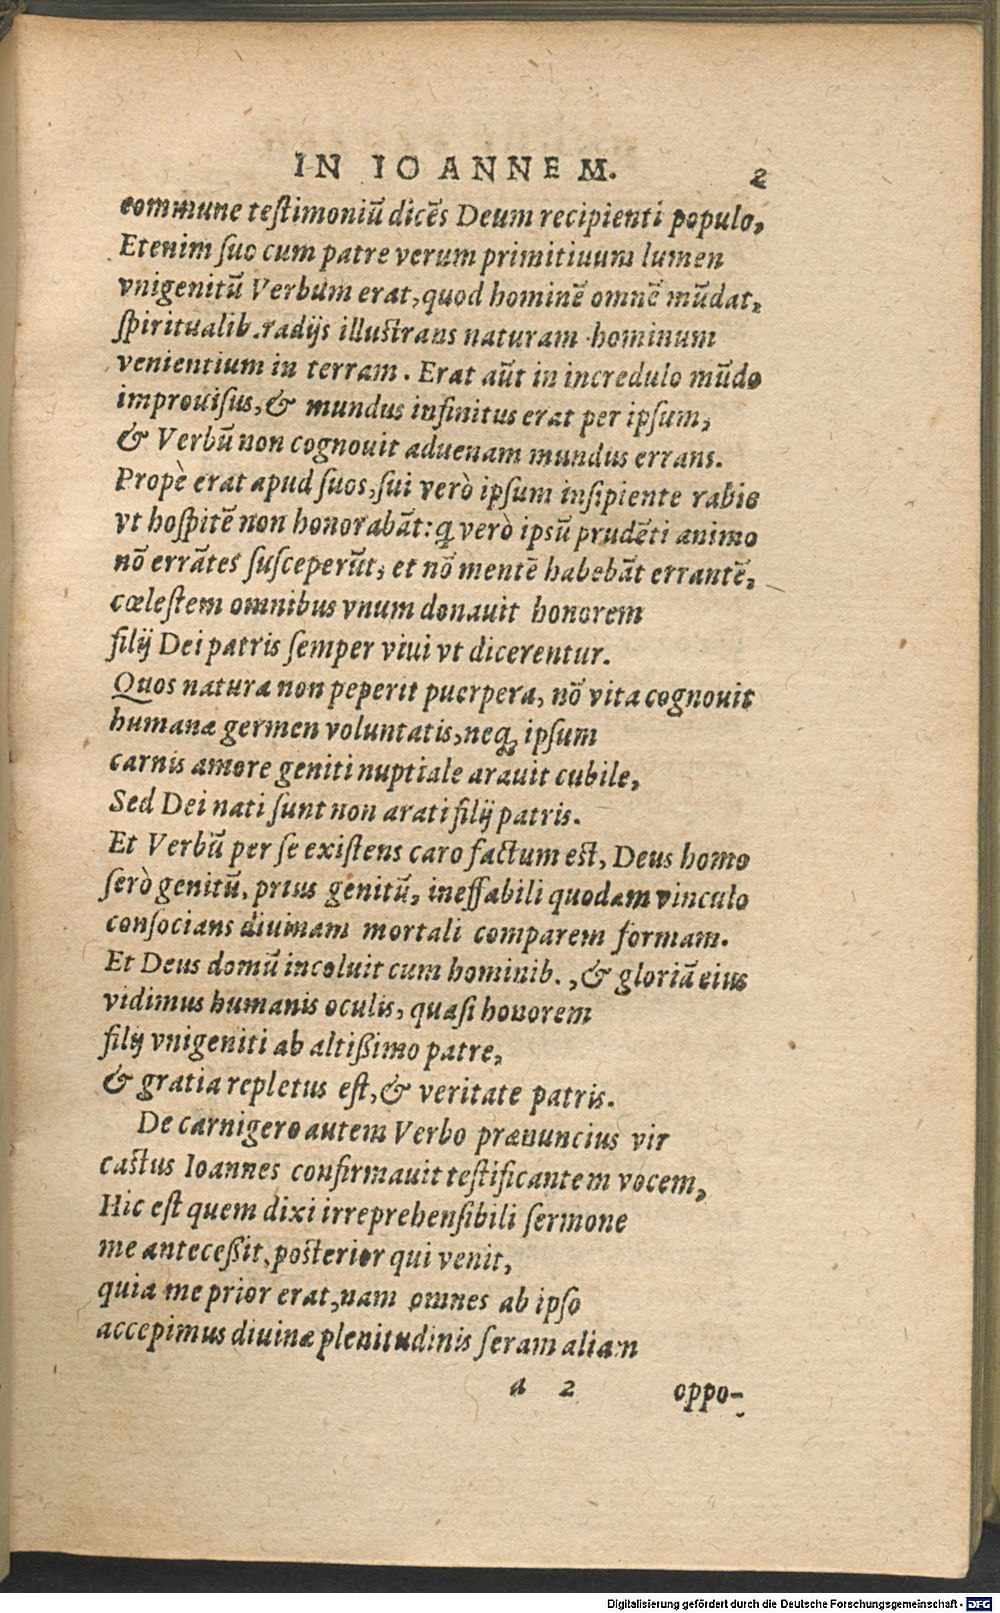 IN IOANNEM. 2
commune testimoniū dicēs Deum recipienti populo,
Etenim suo cum patre verum primitiuum lumen
vnigenitū Verbum erat, quod hominē omnē mūdat,
spiritualib. radijs illustrans naturam hominum
venientium in terram. Erat aūt in incredulo mūdo
improuisus, & mundus infinitus erat per ipsum,
& Verbū non cognouit aduenam mundus errans.
Propè erat apud suos, sui verò ipsum insipiente rabie
vt hospitē non honorabāt: ꝗ verò ipsū prudēti animo
nō errātes susceperūt, et nō mentē habebāt errantē,
cœlestem omnibus vnum donauit honorem
filij Dei patris semper viui vt dicerentur.
Quos natura non peperit puerpera, nō vita cognouit
humanæ germen voluntatis, neq; ipsum
carnis amore geniti nuptiale arauit cubile,
Sed Dei nati sunt non arati filij patris.
Et Verbū per se existens caro factum est, Deus homo
serò genitū, prius genitū, ineffabili quodam vinculo
consocians diuinam mortali comparem formam.
Et Deus domū incoluit cum hominib., & gloriā eius
vidimus humanis oculis, quasi honorem
filij vnigeniti ab altißimo patre,
& gratia repletus est, & veritate patris.
De carnigero autem Verbo prænuncius vir
castus Ioannes confirmauit testificantem vocem,
Hic est quem dixi irreprehensibili sermone
me anteceßit, posterior qui venit,
quia me prior erat, nam omnes ab ipso
accepimus diuinæ plenitudinis seram aliam
a 2 oppo-
Digitalisierung gefördert durch die Deutsche Forschungsgemeinschaft - DFG